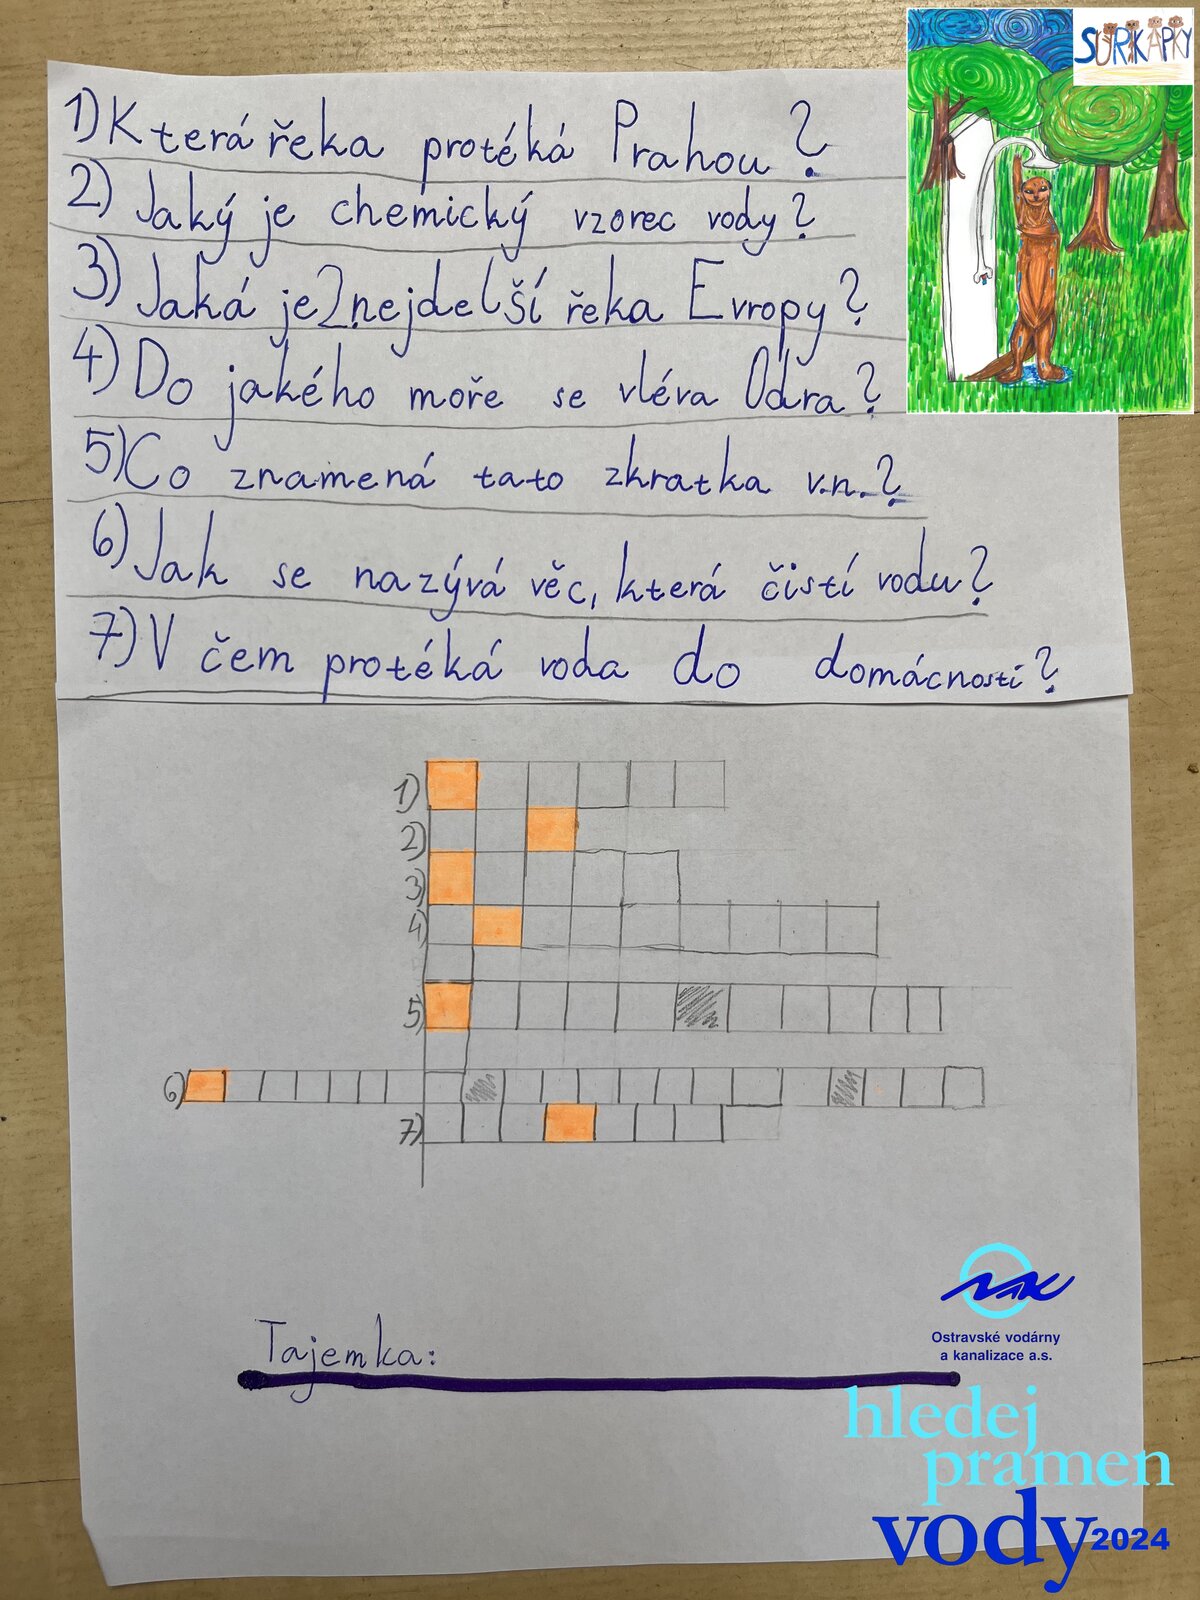 SURIKAPKY
1) Která řeka protéká Prahou?
2) Jaký je chemický vzorec vody?
3) Jaká je 2 nejdelší řeka Evropy?
4) Do jakého moře se vléva Odra?
5) Co znamená tato zkratka v.n.?
6) Jak se nazývá věc, která čistí vodu?
7) V čem protéká voda do domácností?
1)
2)
3)
4)
5)
6)
7)
Tajemka:
OVAK
Ostravské vodárny
a kanalizace a.s.
hledej
pramen
vody 2024